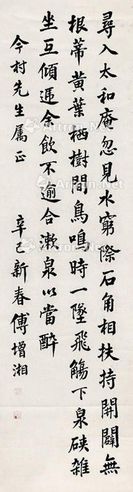 尋入太和庵忽見水窮際石角相扶持開闢無
根蒂黃葉栖樹間鳥鳴時一墜飛觴下泉硤雜
坐互傾遞余飲不逾合漱泉以當醉
今村先生屬正
辛巳新春傅增湘